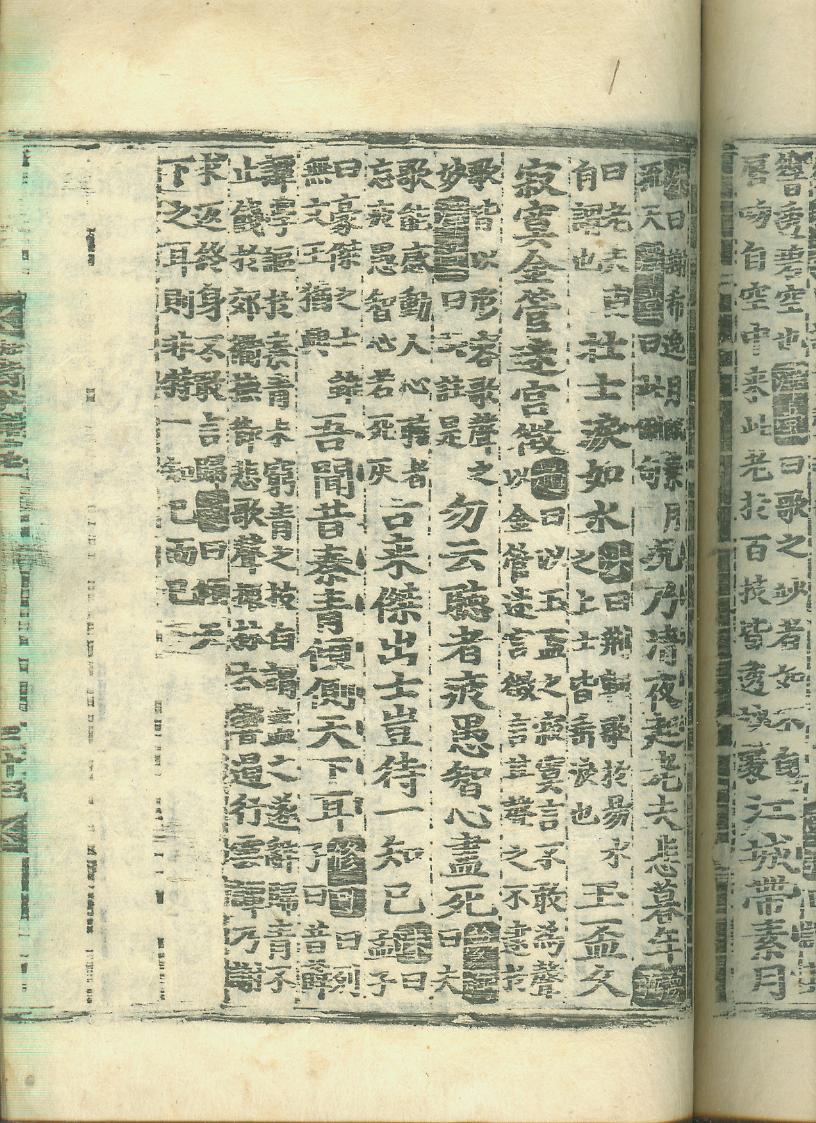 響透碧空也 曰歌之妙者如不自
唇吻自空中來此老於百技皆透
江城帶素月
曰謝希逸月賦素月
流天 曰此句
況乃清夜起老夫悲暮年
曰老夫
自謂也
壯士淚如水
曰荊軻歌於易水
之上士皆垂淚也
玉盃久
寂寞金管迷宮徵
曰以玉盃之寂寞言不敢為聲
以金管迷言徵言其聲之不逮於
歌皆以形容歌聲之
妙 曰此註是
勿云聽者疲愚智心盡死
曰夫
歌能感動人心聽者
忘疲愚智心若死灰
古來傑出士豈待一知己
曰孟子
曰豪傑之士雖
無文王猶興
吾聞昔秦青傾側天下耳
曰列
子曰昔薛
譚學謳於秦青未窮青之技自謂盡之遂辭歸青不
止餞於郊衢撫節悲歌聲振林木響遏行雲譚乃謝
求返終身不敢言歸 曰傾天
下之耳則非特一知己而已